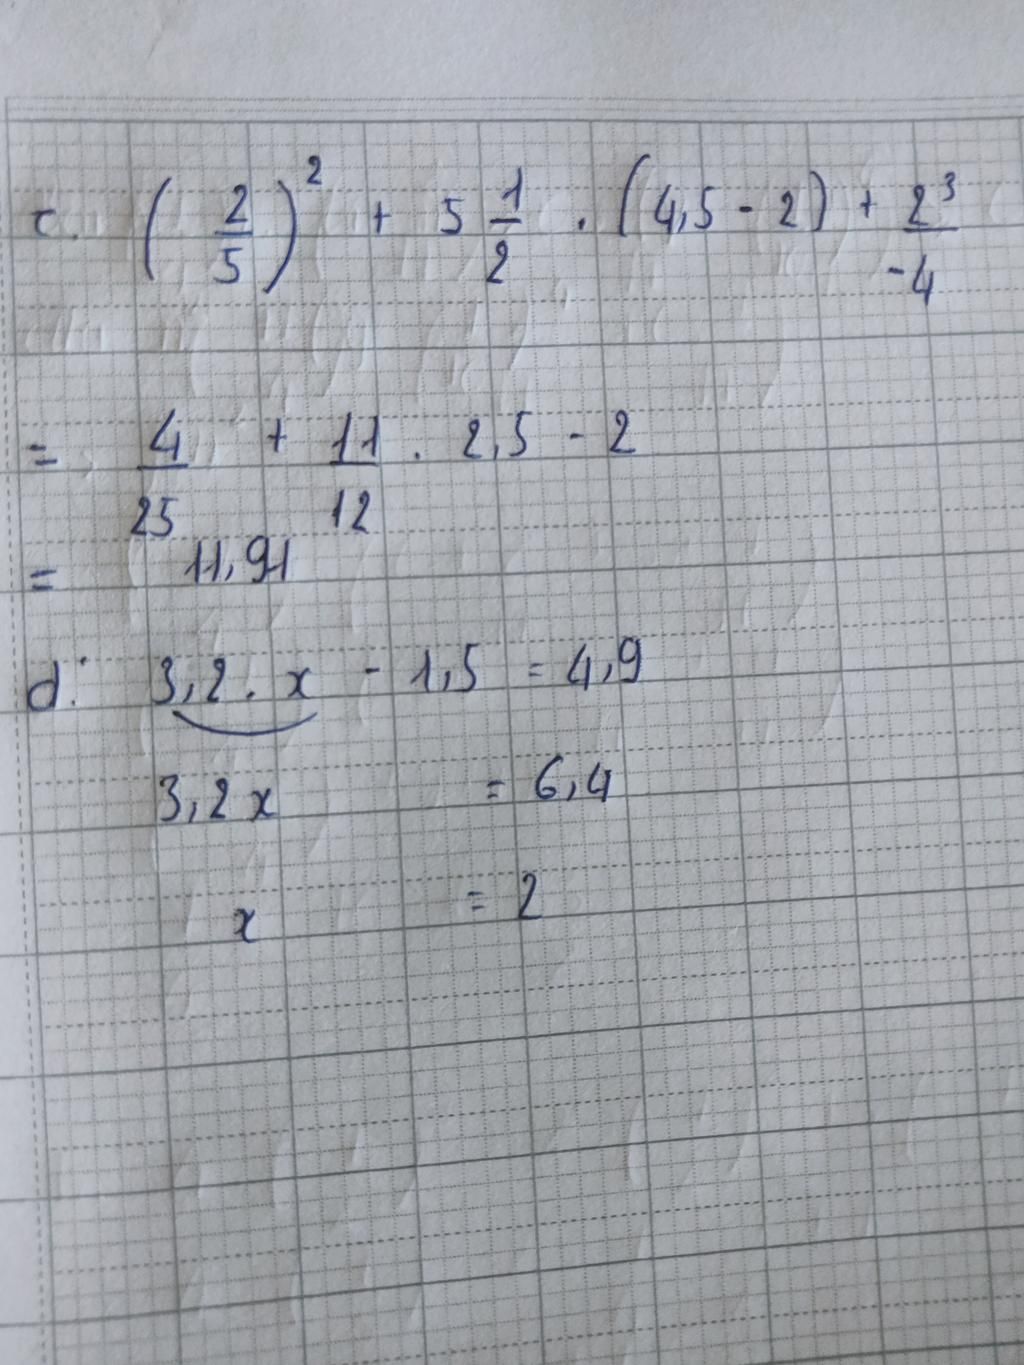 c. (2/5)² + 5 1/2 . (4,5 - 2) + 2³/-4
= 4/25 + 11/12 . 2,5 - 2
= 11,91
d: 3,2 . x - 1,5 = 4,9
3,2 x = 6,4
x = 2